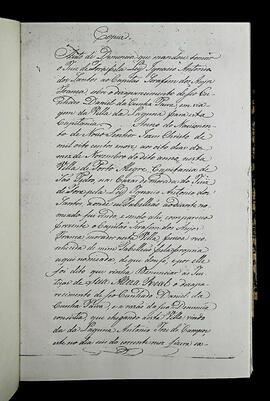 Copia
Auto de Denuncia que mandou tomar
o Juiz de Fora pela Ley Ignacio Antonio
dos Santos ao Capitão Serafim dos Anjos
França, sobre o desaparecimento de seo Cu-
nhado Daniel da Cunha Pátria, em via
gem da Villa da Laguna para esta
Capitania Anno do Nascimento
de Nosso Senhor Jezus Christo de
mil oito centos nove, aos oito dias do
mez de Novembro do dito anno, nesta
Villa de Porto Alegre, Capitania de
São Pedro, em Cazas de morada do Juiz
de Fora pela Ley Ignacio Antonio dos
Santos, aonde eu Tabelliaõ ao diante no
meado fui vindo, e sendo ahi, compareceo
prezente o Capitão Serafim dos Anjos
França, morador nesta Villa, pessoa reco
nhecida de mim Tabelliaõ pela propria
aqui nomeada, de que dou fé, e por elle
foi dito que vinha denunciar ás Jus
tiças de Sua Alteza Real o desapa
recimento de seo Cunhado Daniel da
Cunha Pátria, e a razão da sua Denuncia
consistia, que chegando a esta Villa vinda
da da Laguna Antonio Joze de Campos
este no dia seis do corrente mez, fizera ca-